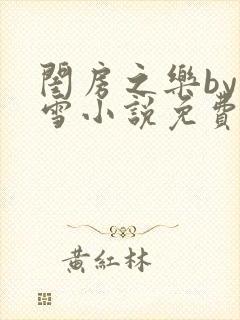 閨房之樂by
雪小説免費
黃紅林